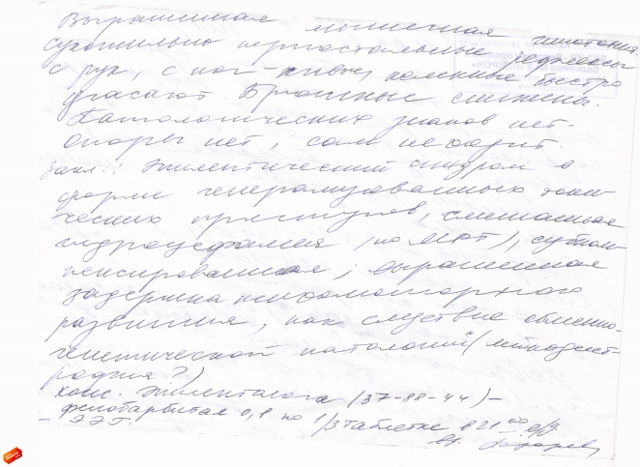 Выраженная мышечная гипотония.
Сухожильно периостальные рефлексы
с рук, с ног - живы, коленные быстро
угасают. Брюшные снижены.
Патологических знаков нет.
Опоры нет, сам не сидит.
Закл.: Эпилептический синдром в
форме генерализованных тони-
ческих приступов, смешанная
гидроцефалия (по МРТ), субком-
пенсированная; выраженная
задержка психомоторного
развития, как следствие обменно-
генетической патологии (лейкодист-
рофия?)
конс. эпилептолога (37-88-44) -
фенобарбитал 0,1 по 1/3 таблетке в 21 00 
- ЭЭГ